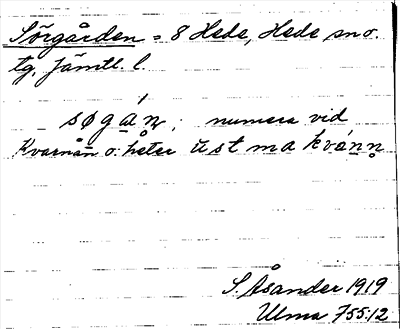 Sörgården = 8 Hede, Hede sn o.
tg, Jämtl. l.
søgán; numera vid
Kvarnån o. heter ùst ma kvánn
S. Åsander 1919
Ulma 755:12